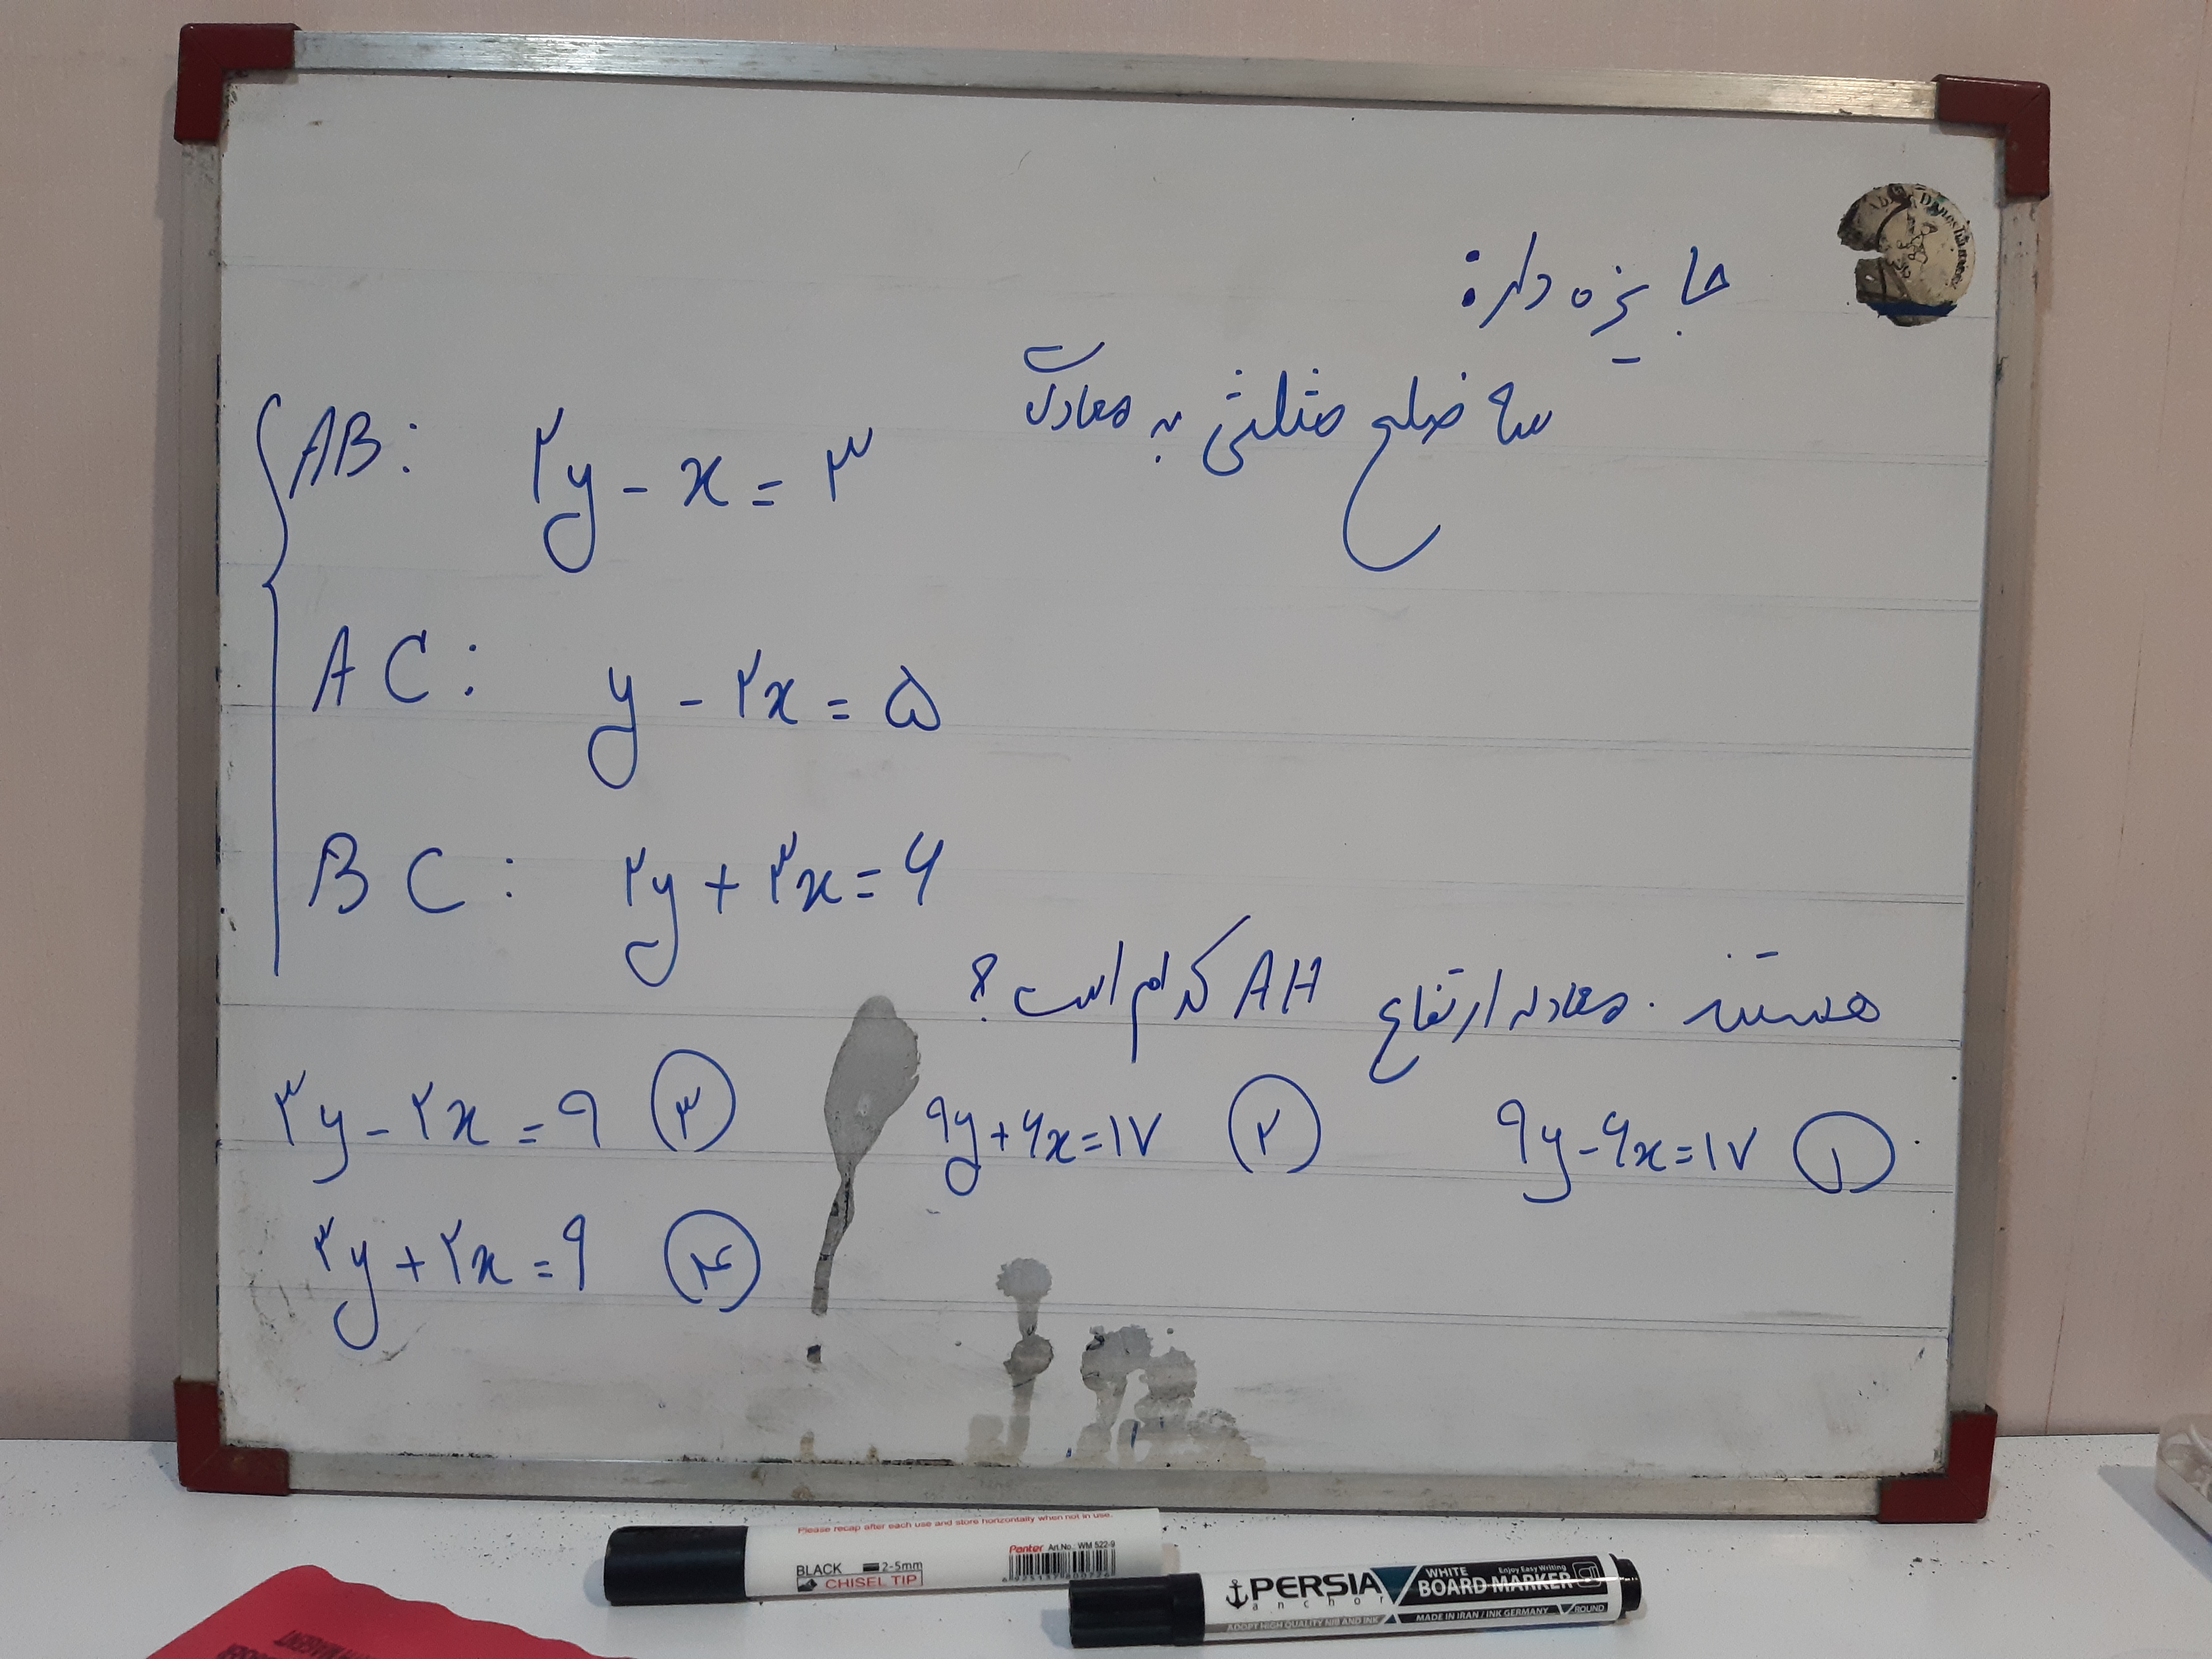 جایزه داره:
سه ضلع مثلثی به معادلات
AB: ۲y - x = ۳
AC: y - ۲x = ۵
BC: ۲y + ۳x = ۶
هستند. معادله ارتفاع AH کدام است؟
۱ ۹y - ۶x = ۱۷
۲ ۹y + ۶x = ۱۷
۳ ۳y - ۲x = ۹
۴ ۳y + ۲x = ۹
Please recap after each use and store horizontally when not in use.
BLACK 2-5mm
CHISEL TIP
Panter Art.No.: WM 522-9
PERSIA
anchor
WHITE
BOARD MARKER
Enjoy Easy Writing
ADOPT HIGH QUALITY NIB AND INK
MADE IN IRAN / INK GERMANY
ROUND